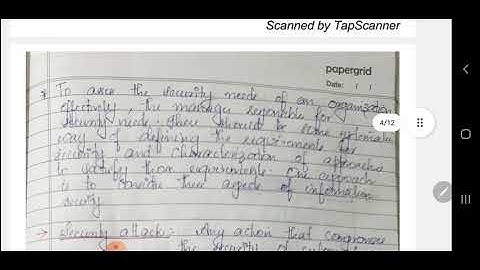 Scanned by TapScanner
papergrid
Date: / /
* To asses the security needs of an organization
effectively, the manager responsible for
security needs there should be some systematic
way of defining the requirements for
security and characterization of approaches
to satisfy those requirements. One approach
is to consider three aspects of information
security
4/12
→ Security attack :- Any action that compromises
the security of